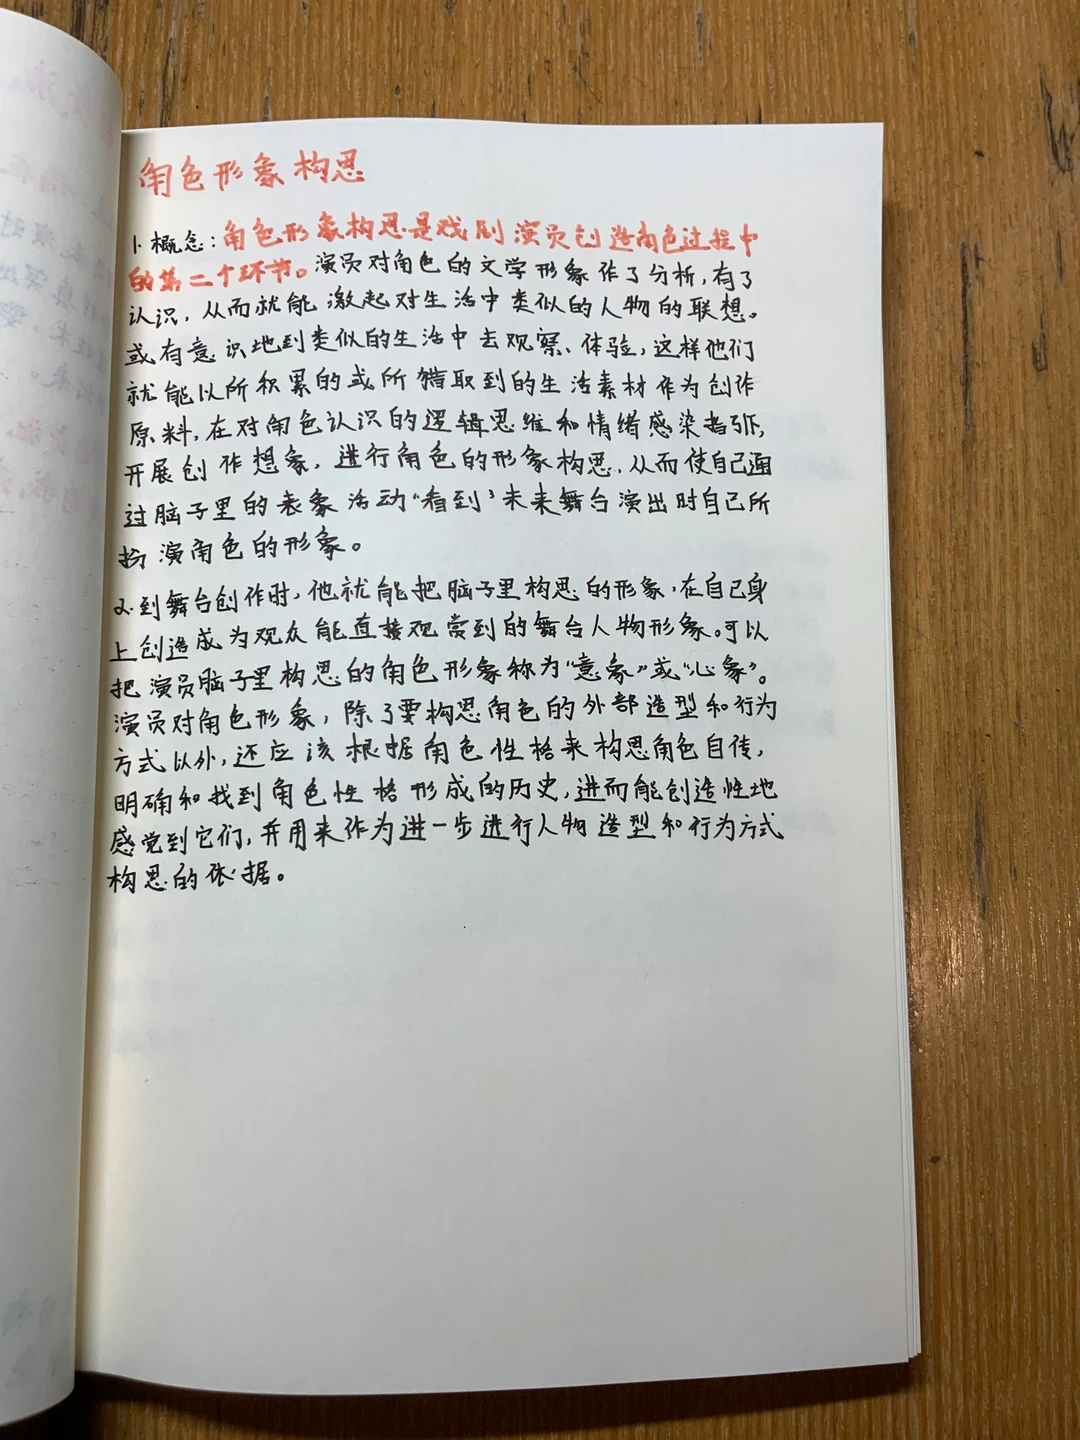 角色形象构思
1. 概念：角色形象构思是戏剧演员创造角色过程中
的第二个环节。演员对角色的文学形象作了分析，有了
认识，从而就能激起对生活中类似的人物的联想。
或有意识地到类似的生活中去观察、体验，这样他们
就能以所积累的或所猎取到的生活素材作为创作
原料，在对角色认识的逻辑思维和情绪感染指引下，
开展创作想象，进行角色的形象构思，从而使自己通
过脑子里的表象活动“看到”未来舞台演出时自己所
扮演角色的形象。
2. 到舞台创作时，他就能把脑子里构思的形象，在自己身
上创造成为观众能直接观赏到的舞台人物形象。可以
把演员脑子里构思的角色形象称为“意象”或“心象”。
演员对角色形象，除了要构思角色的外部造型和行为
方式以外，还应该根据角色性格来构思角色自传，
明确和找到角色性格形成的历史，进而能创造性地
感觉到它们，并用来作为进一步进行人物造型和行为方式
构思的依据。